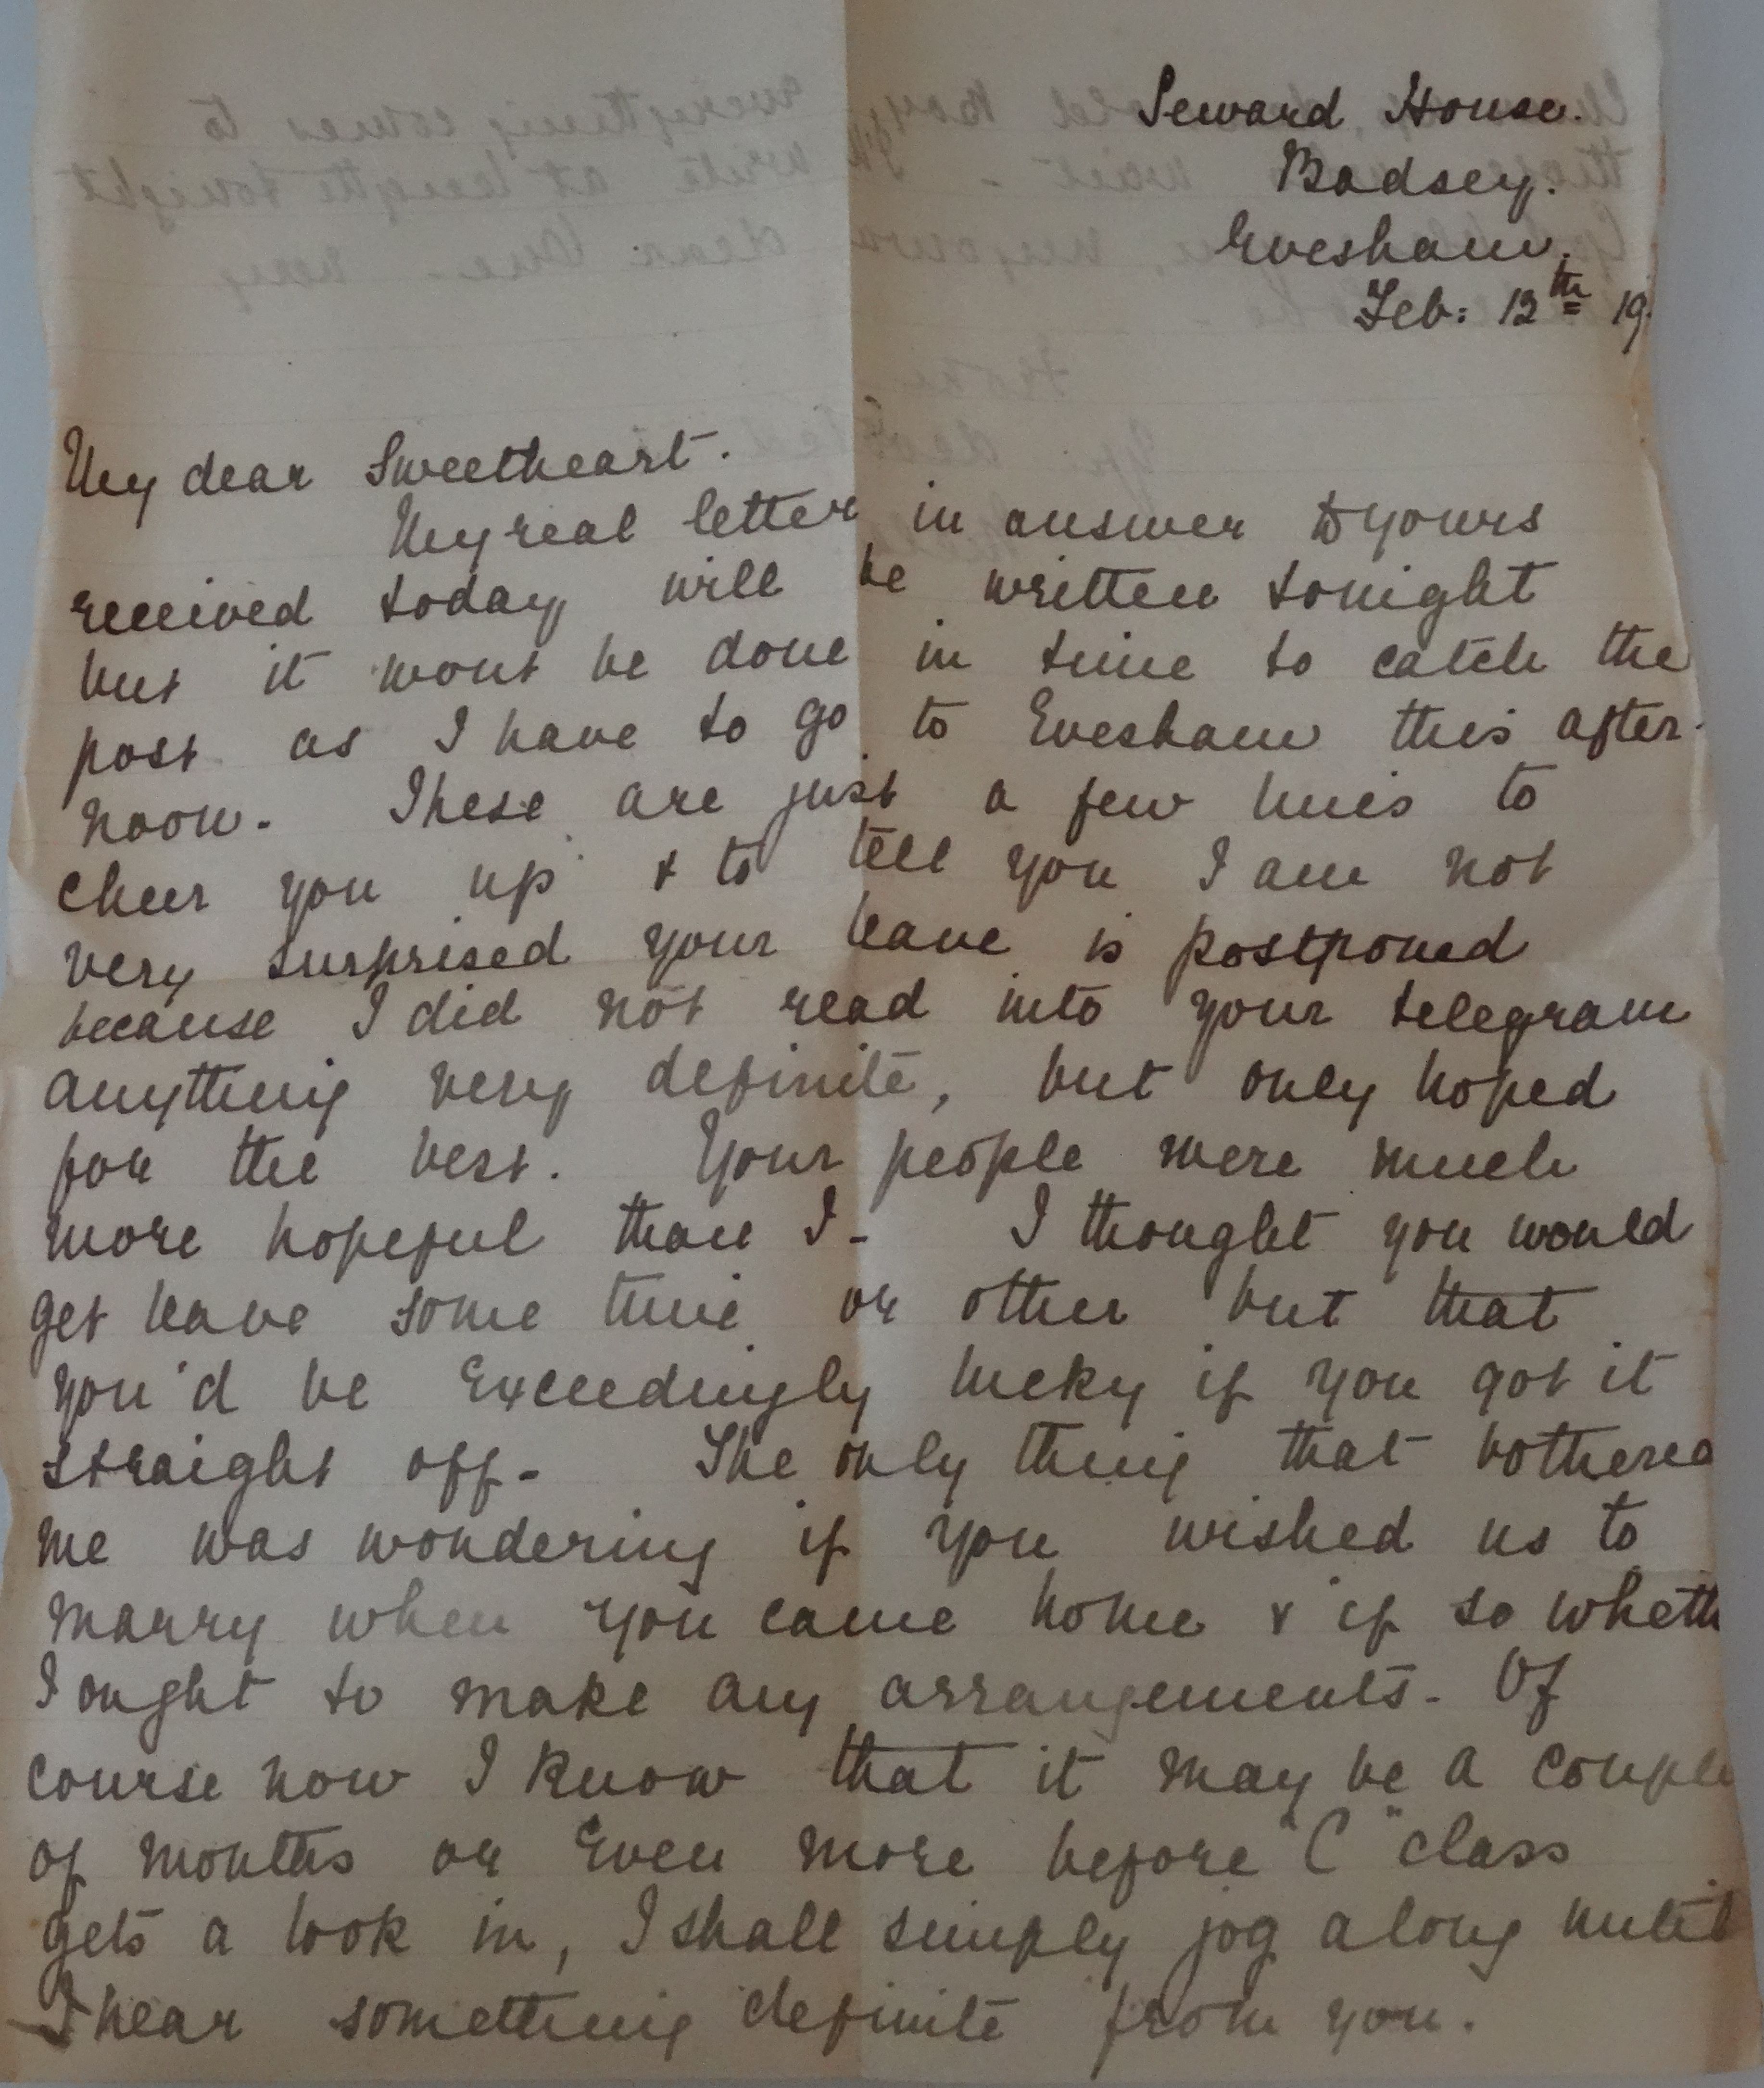 Seward House.
Badsey.
Evesham.
Feb: 12th 19.
My dear Sweetheart.
My real letter in answer to yours
received today, will be written tonight
but it wont be done in time to catch the
post as I have to go to Evesham this after-
noon. These are just a few lines to
cheer you up & to tell you I am not
very surprised your leave is postponed
because I did not read into your telegram
anything very definite, but only hoped
for the best. Your people were much
more hopeful than I - I thought you would
get leave some time or other but that
you'd be exceedingly lucky if you got it
straight off - The only thing that bothered
me was wondering if you wished us to
marry when you came home & if so wheth
I ought to make any arrangements - Of
course now I know that it may be a couple
of months or even more before "C" class
gets a look in, I shall simply jog along until
I hear something definite from you.